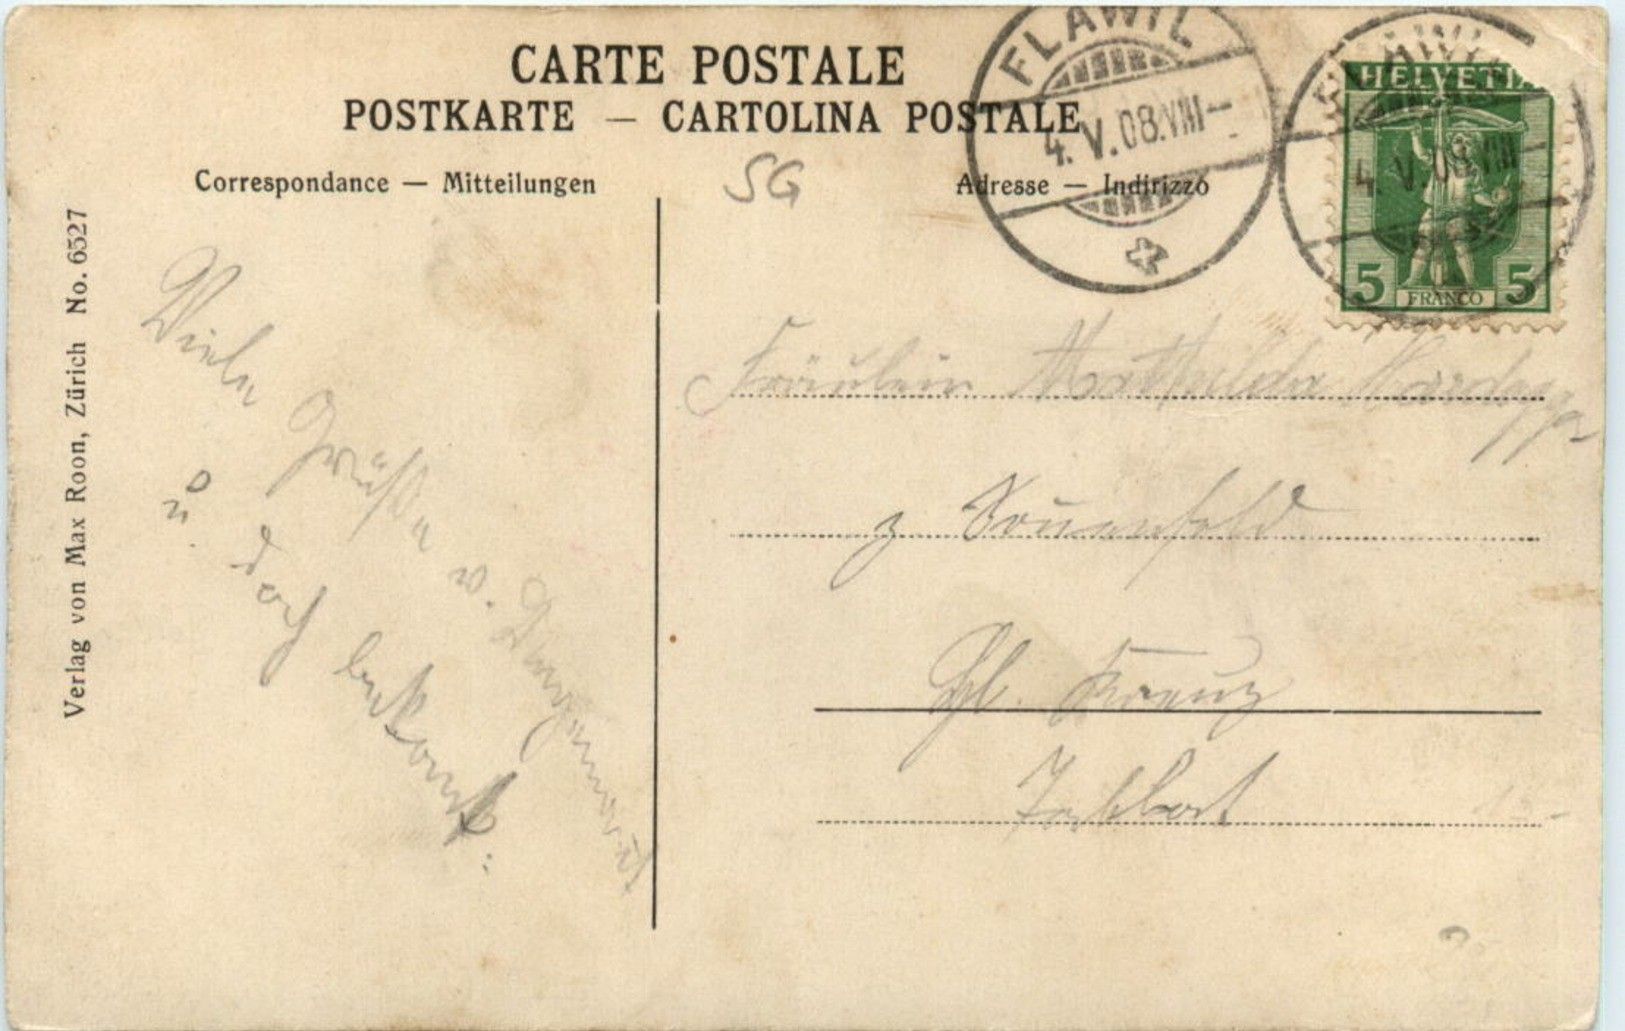 CARTE POSTALE
POSTKARTE — CARTOLINA POSTALE
Correspondance — Mitteilungen
SG
Adresse — Indirizzo
FLAWIL
4. V. 08. VIII —
HELVETIA
4. V. 08. VIII —
5 FRANCO 5
Verlag von Max Roon, Zürich No. 6527
Viele
Grüße v.
u. doch bekannt
Fräulein Mathilde
z.
Kreuz